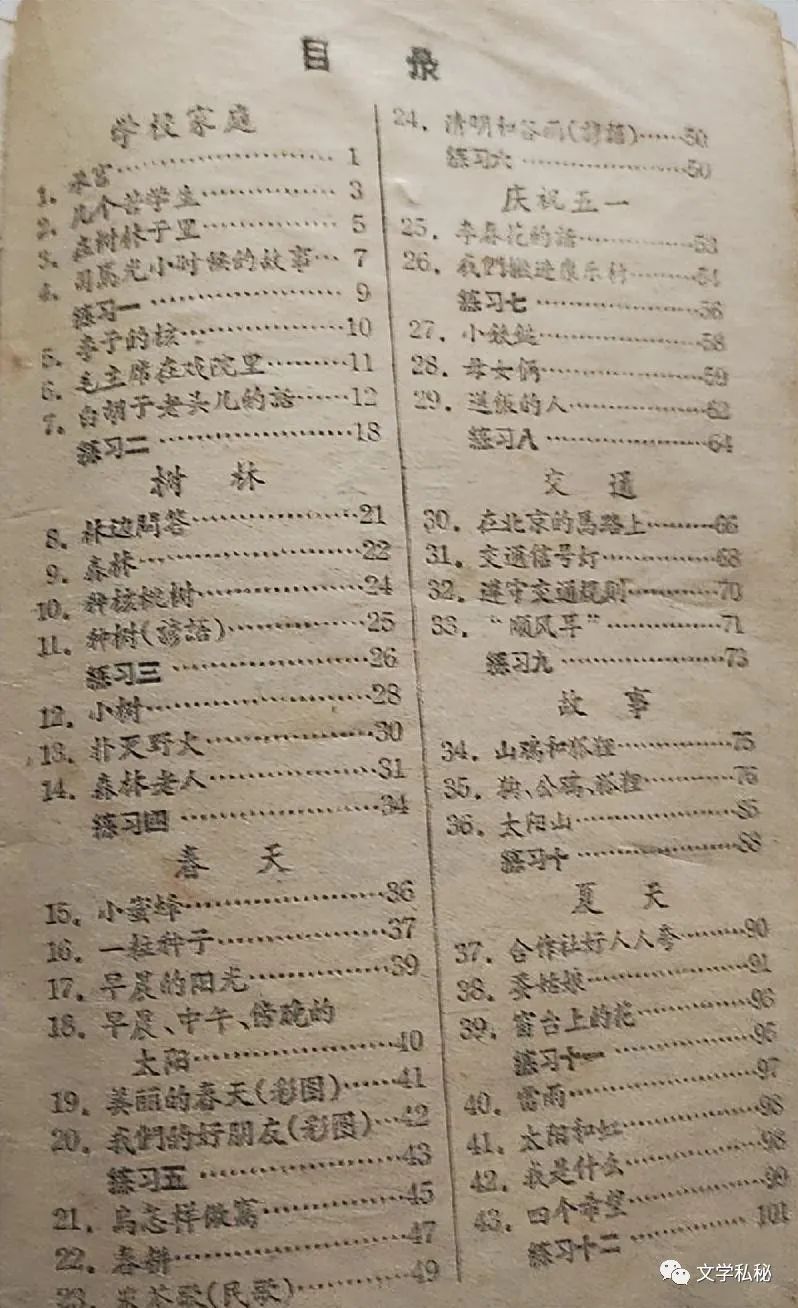 目 录
学校家庭
1. 来宾……1
2. 几个苦学生……3
3. 在树林子里……5
4. 司馬光小时候的故事…7
练习一……9
5. 李子的核……10
6. 毛主席在戏院里……11
7. 白胡子老头儿的話……12
练习二……18
树 林
8. 林边問答……21
9. 森林……22
10. 种核桃树……24
11. 种树(諺語)……25
练习三……26
12. 小树……28
13. 扑灭野火……30
14. 森林老人……31
练习四……34
春 天
15. 小蜜蜂……36
16. 一粒种子……37
17. 早晨的阳光……39
18. 早晨、中午、傍晚的
太阳……40
19. 美丽的春天(彩图)……41
20. 我們的好朋友(彩图)…42
练习五……43
21. 鳥怎样做窩……45
22. 春耕……47
23. 采茶歌(民歌)……49
24. 清明和谷雨(諺語)……50
练习六……50
庆祝五一
25. 李春花的話……53
26. 我們搬进康乐村……54
练习七……56
27. 小鉄鎚……58
28. 母女俩……59
29. 送飯的人……62
练习八……64
交 通
30. 在北京的馬路上……66
31. 交通信号灯……68
32. 遵守交通规则……70
33. “順风耳”……71
练习九……73
故 事
34. 山鸡和狐狸……75
35. 狗、公鸡、狐狸……76
36. 太阳山……85
练习十……88
夏 天
37. 合作社好人人夸……90
38. 蚕姑娘……91
39. 窗台上的花……93
练习十一……95
40. 雷雨……97
41. 太阳和虹……98
42. 我是什么……98
43. 四个希望……99
练习十二……101
文学私秘